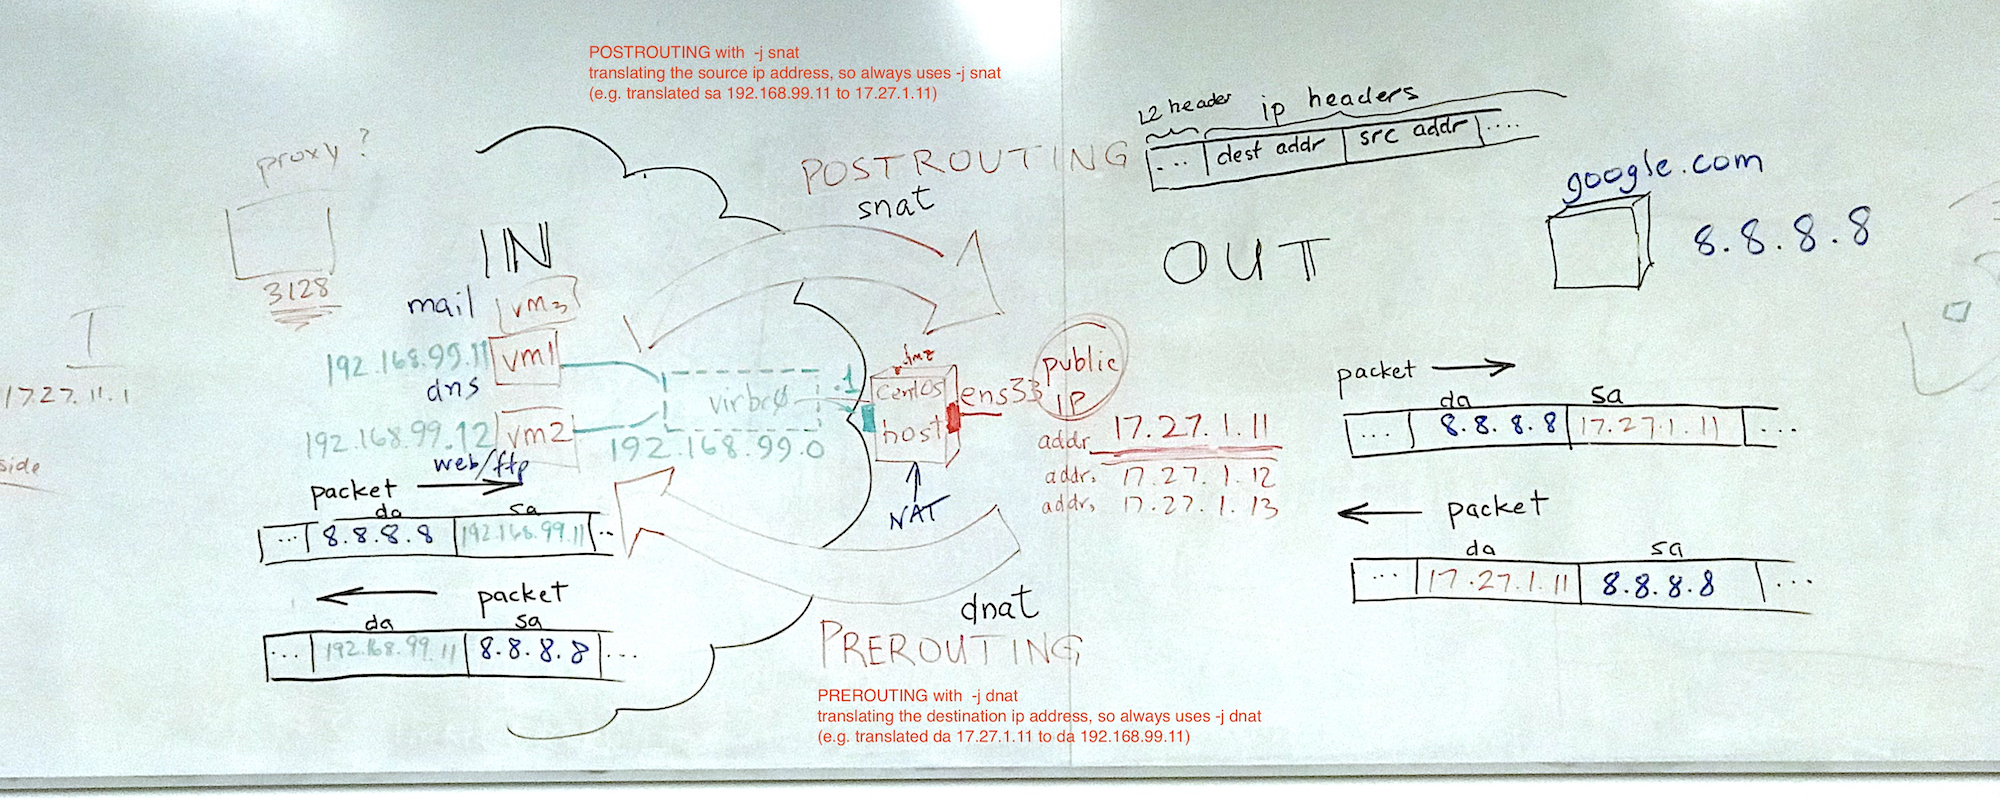 POSTROUTING with -j snat
translating the source ip address, so always uses -j snat
(e.g. translated sa 192.168.99.11 to 17.27.1.11)
L2 header
ip headers
... dest addr src addr ....
proxy ?
3128
POSTROUTING
snat
google.com
8.8.8.8
IN
OUT
mail vm3
192.168.99.11 vm1
dns
192.168.99.12 vm2
web/ftp
virbr0
192.168.99.0
.1
centos
host
NAT
ens33
public
IP
addr 17.27.1.11
addr, 17.27.1.12
addr, 17.27.1.13
17.27.11.1
side
packet
da sa
... 8.8.8.8 192.168.99.11 ..
packet
da sa
... 192.168.99.11 8.8.8.8 ...
packet
da sa
... 8.8.8.8 17.27.1.11 ...
packet
da sa
... 17.27.1.11 8.8.8.8 ...
dnat
PREROUTING
PREROUTING with -j dnat
translating the destination ip address, so always uses -j dnat
(e.g. translated da 17.27.1.11 to da 192.168.99.11)